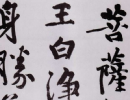 菩薩
王白淨
身勝